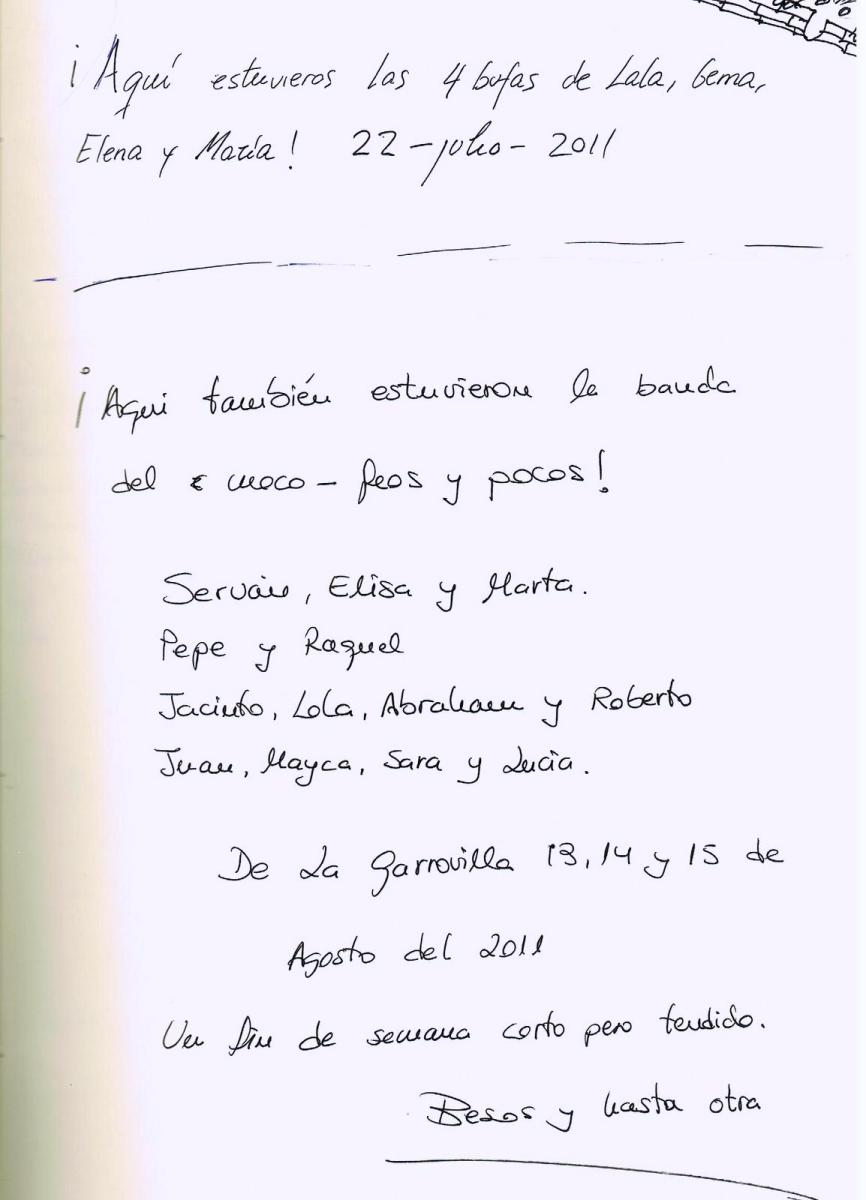 ¡Aquí estuvieros las 4 bufas de Lala, Gema,
Elena y María! 22-julio-2011
¡Aqui también estuvieron la banda
del moco - feos y pocos!
Serván, Elisa y Marta.
Pepe y Raquel
Jacinto, Lola, Abraham y Roberto
Juan, Mayca, Sara y Lucia.
De La Garrovilla 13, 14 y 15 de
Agosto del 2011
Un fin de semana corto pero tendido.
Besos y hasta otra